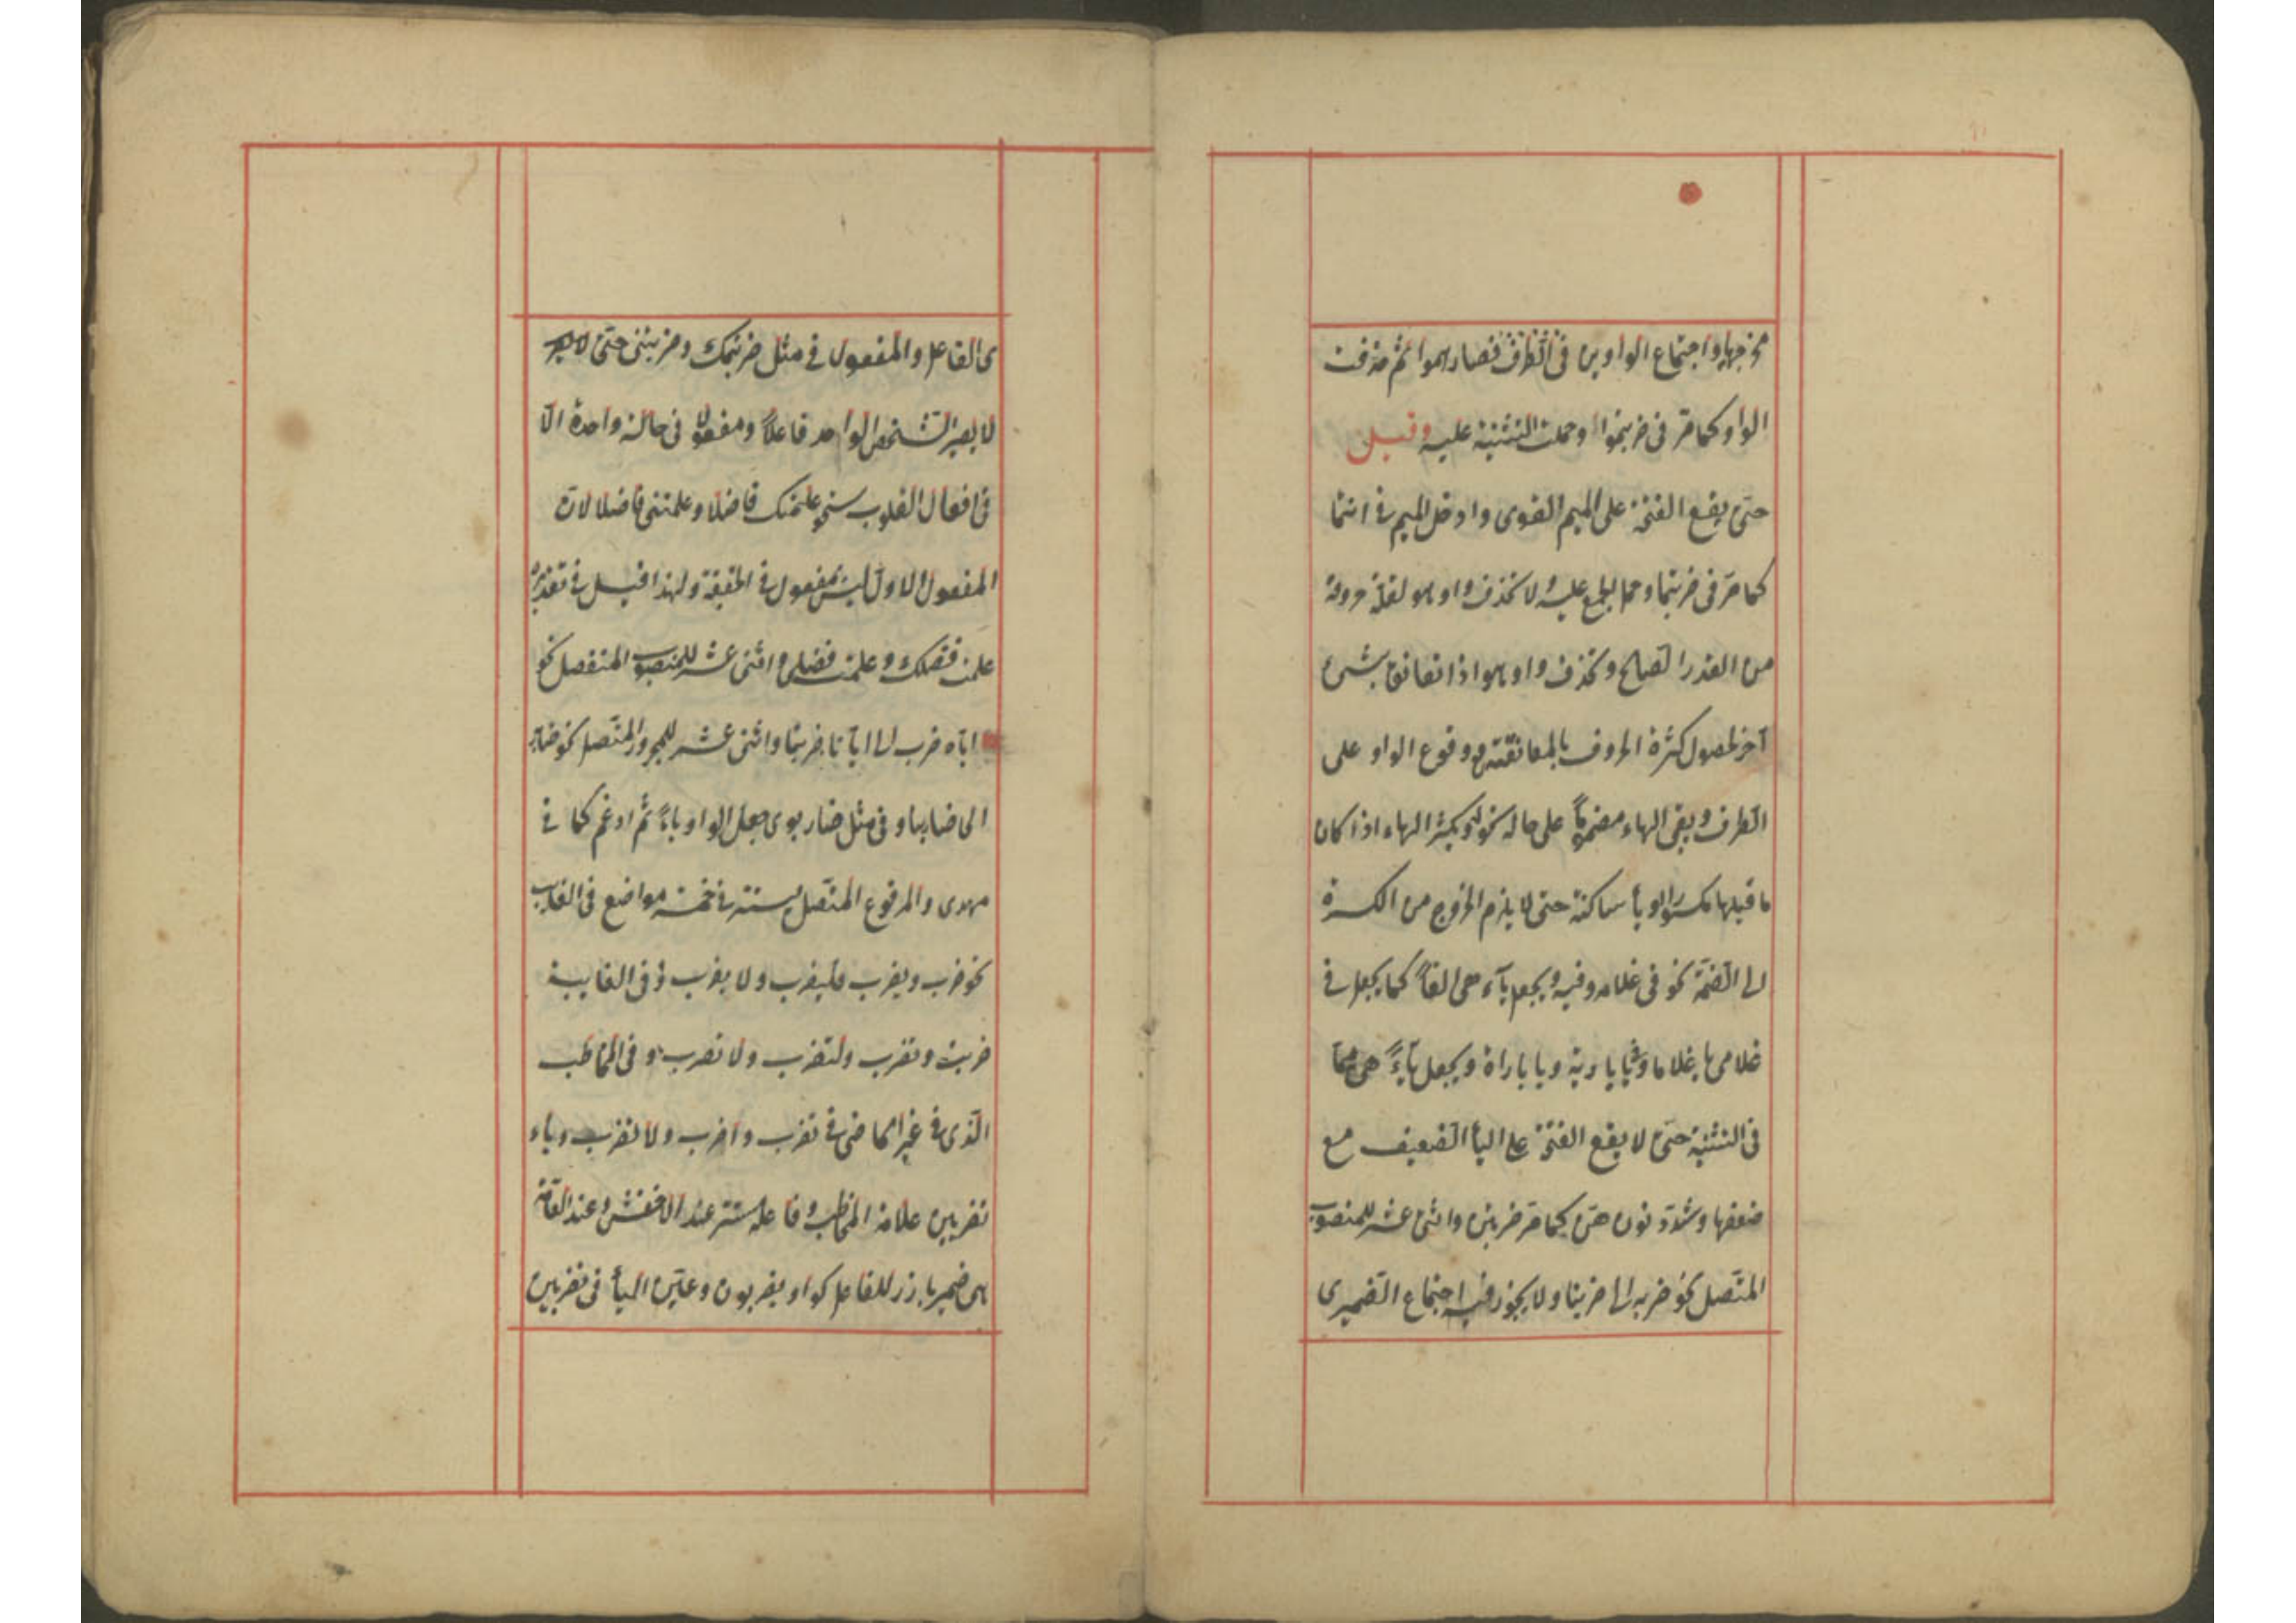 مخرجها واجتماع الواوين فى الطرف فصار هموا ثم حذفت
الواو كما مرّ فى ضربتموا وحملت التثنية عليه وقيل
حتى يقع الفتحة على الميم القوى وادخل الميم فى انتما
كما مرّ فى ضربتما وحمل الجمع عليه ولا تحذف واو هو لقلّة حروفه
من القدر الصالح وتحذف واو هو اذا تعانق بشئ
آخر لحصول كثرة الحروف بالمعانقة مع وقوع الواو على
الطرف وبقى الهاء مضموماً على حاله نحو له ويكسر الهاء اذا كان
ما قبلها مكسورا او يأ ساكنة حتى لا يلزم الخروج من الكسرة
الى الضمّة نحو فى غلامه وفيه ويجعل ياء هى الفاً كما يجعل فى
غلامى يا غلاما وفى يا بادية ويا باداة ويجعل ياء هى ميما
فى التثنية حتى لا يقع الفتحة على اليأ الضعيف مع
ضعفها وشدّد نون هنّ كما مرّ ضربتن واثنى عشر للمنصوب
المتّصل نحو ضربه الى ضربنا ولا يجوز فيه اجتماع الضميرى
ى الفاعل والمفعول فى مثل ضربتك وضربتنى حتى
لا يصير الشخص الواحد فاعلاً ومفعولا فى حالة واحدة الّا
فى افعال القلوب نحو علمتك فاضلا وعلمتنى فاضلا لانّ
المفعول الاول ليس بمفعول فى الحقيقة ولهذا قيل فى تقديره
علمت فضلك وعلمت فضلى واثنى عشر للمنصوب المنفصل نحو
اياه ضرب الى ايانا ضربنا واثنى عشر للمجرور المتّصل نحو ضاربه
الى ضاربنا وفى مثل ضاربوى جعل الواو ياءً ثم ادغم كما فى
مهدى والمرفوع المتّصل يستتر فى خمسة مواضع فى الغايب
نحو ضرب ويضرب وليضرب ولا يضرب وفى الغايبة
ضربت وتضرب ولتضرب ولا تضرب وفى المخاطب
الّذى فى غير الماضى فى تضرب واضرب ولا تضرب وياء
تضربين علامة المخاطب وفاعله مستتر عند الاخفش وعند العامّة
هى ضمير بارز للفاعل كواو يضربون وعيّن اليأ فى تضربين